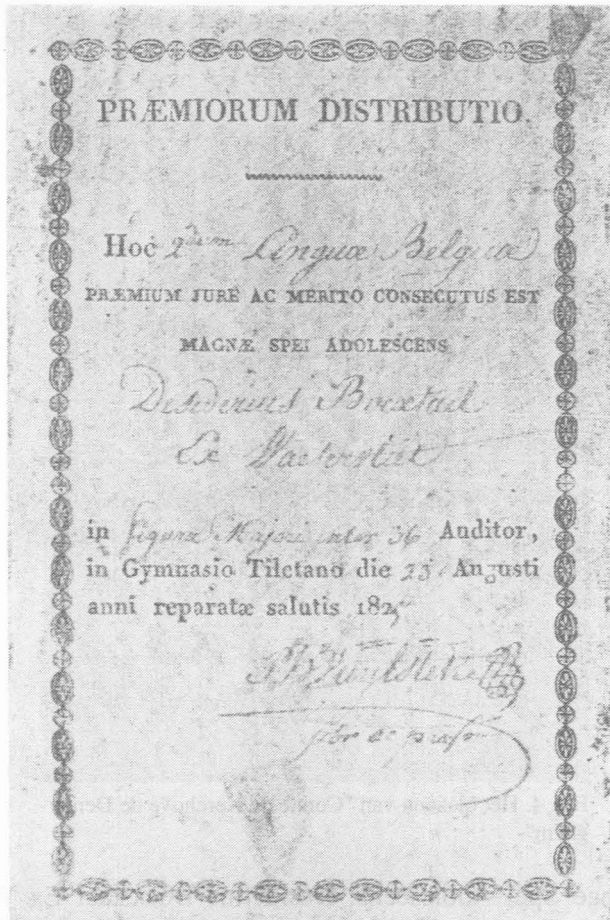 PRÆMIORUM DISTRIBUTIO.
Hoc 2dum Linguæ Belgicæ
PRÆMIUM JURE AC MERITO CONSECUTUS EST
MAGNÆ SPEI ADOLESCENS
Desiderius
Ex
in figura Majori inter 36 Auditor,
in Gymnasio Tiletano die 23 Augusti
anni reparatæ salutis 182